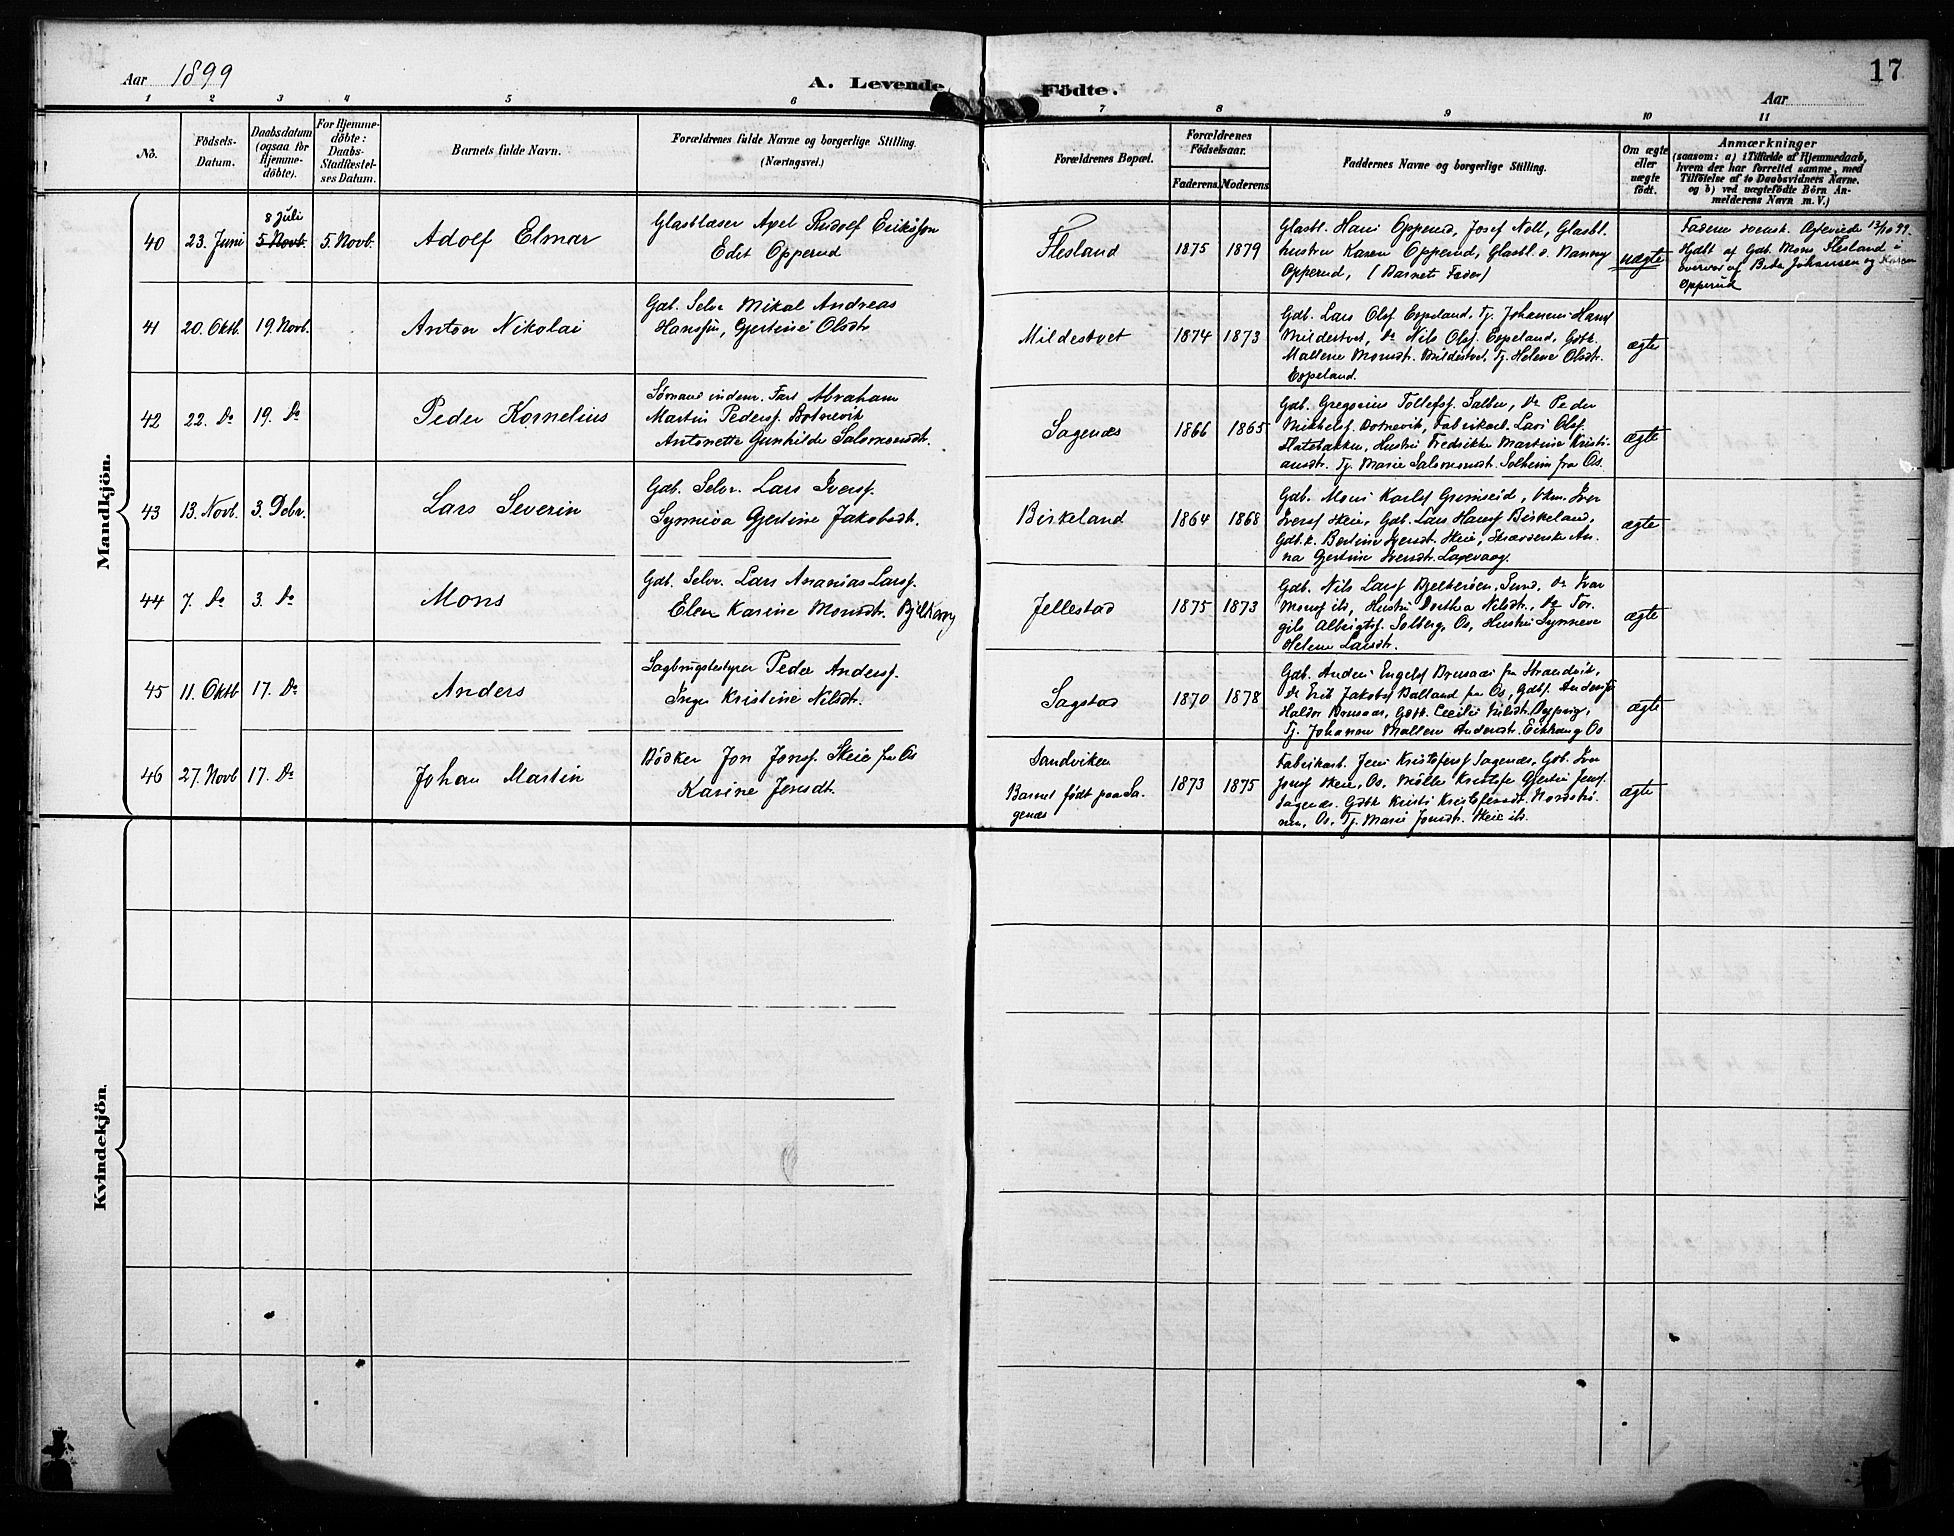 Aar 1899
A. Levende Födte.
17
Aar
1 2 3 4 5 6 7 8 9 10 11
No.
Födsels-
Datum.
Daabsdatum
(ogsaa for
Hjemme-
döbte).
For Hjemme-
döbte:
Daabs-
Stadfæstel-
ses Datum.
Barnets fulde Navn.
Forældrenes fulde Navne og borgerlige Stilling.
(Næringsvei.)
Forældrenes Bopæl.
Forældrenes
Födselsaar.
Faderens. Moderens.
Faddernes Navne og borgerlige Stilling.
Om ægte
eller
uægte
födt.
Anmærkninger
(saasom: a) i Tilfælde af Hjemmedaab,
hvem der har forrettet samme, med
Tilföielse af to Daabsvidners Navne,
og b) ved uægtefödte Börn An-
melderens Navn m. V.)
Mandkjön.
40
23. Juni
8 Juli
5 Novb.
5. Novb.
Adolf Elmar
Glasblaser Axel Rudolf Eriksson
Edit Opperud
Flesland
1875
1879
Glasbl. Hans Opperud, Josef Noll, Glasbl.
hustru Karen Opperud, Glasbl. d. Nanny
Opperud, (Barnets Fader)
uægte
Faderen svensk.
Hjdbt af Gdb. Mons Flesland i
overvær af Johansen og Karen
Opperud
41
20. Oktb.
19. Novb.
Anton Nikolai
Gdb. Selv. Mikal Andreas
Hanssøn, Gjertine Olsdtr
Mildestvet
1874
1873
Gdb. Lars Olsf. Espeland, Tj. Johannes Hansf
Mildestvet, Do Nils Olsf. Espeland, Gdbk.
Mallene Monsdtr. Mildestvet, Tj. Helene Olsdtr.
Espeland.
ægte
42
22. Do
19. Do
Peder Kornelius
Abraham
Martin Pedersf. Botnevik
Antonette Gunhilde Salomonsdtr.
Sagenæs
1866
1865
Gdb. Gregorius Tollefsf. Salbu, Do Peder
Mikkelsf. Botnevik, Fabrikarb. Lars Olsf.
Hatebakken, Hustru Fredrikke Martine Kristi-
ansdtr. Tj. Marie Salomonsdt. Solheim fra Os.
ægte
43
13. Novb.
3. Debr.
Lars Severin
Gdb. Selv. Lars Iversf.
Synneva Gjertine Jakobsdt.
Birkeland
1864
1868
Gdb. Mons Karlsf Grimseid, Iver
Iversf Skeie, Gdb. Lars Hansf Birkeland,
Gdbk. Bertine Iversdt. Skeie, An-
na Gjertine Iversdt. Laxevaag.
ægte
44
7. Do
3. Do
Mons
Gdb. Selv. Lars Ananias Larsf.
Elen Karine Monsdt.
Jellestad
1875
1873
Gdb. Nils Larsf Bjelkerøen, Sund, Do Ivar
Monsf ibd, Hustru Dorthea Nilsdt., Do Tor-
gils Albrigtsf. Solberg, Os, Hustru Synneve
Helene Larsdt.
ægte
45
11. Oktb
17. Do
Anders
Sagbrugsbestyrer Peder Andersf.
Inger Kristine Nilsdt.
Sagstad
1870
1878
Gdb. Anders Engelsf Brusaas fra Strandvik,
Do Erik Jakobsf Balland fra Os, Gdbf. Andersf
Haldor Brusaas, Gdbk. Cecilie Nilsdt.
Tj. Johanne Mallene Andersdt. Eikhaug Os
ægte
46
27. Novb
17. Do
Johan Martin
Bødker Jon Jonsf. Skeie fra Os
Karine Jensdt.
Sandviken
Barnet født paa Sa-
genæs
1873
1875
Fabrikarb. Jens Kristofersf Sagenæs, Gdb. Iver
Jonsf Skeie, Os, Møller Kristofer Gjertin Jensf.
Sagenæs. Gdbk Kristi Kristofersdt. Nordstrø-
nen, Os. Tj. Marie Jonsdt. Skeie ibd.
ægte
Kvindekjön.